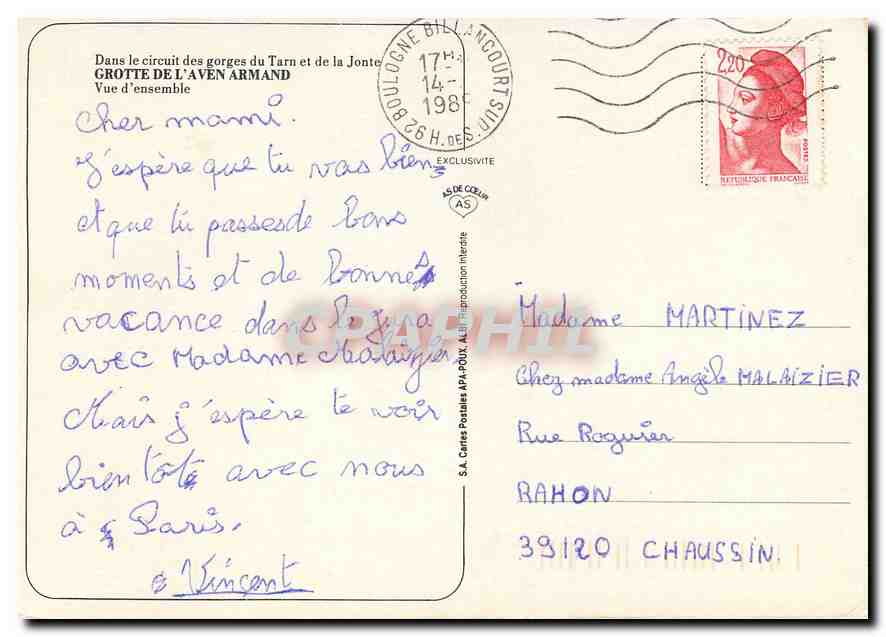 Dans le circuit des gorges du Tarn et de la Jonte
GROTTE DE L'AVEN ARMAND
Vue d'ensemble
Cher mami.
J'espère que tu vas bien
et que tu passes de bons
moments et de bonnes
vacance dans le jura
avec Madame Malaizier.
Mais j'espère te voir
bientôt avec nous
à Paris.
Vincent
92 BOULOGNE BILLANCOURT SUD
H. DE S.
17H
14-
198
EXCLUSIVITE
AS DE CŒUR
AS
S.A. Cartes Postales APA-POUX, ALBI Reproduction interdite
2,20
POSTES
REPUBLIQUE FRANCAISE
CPAPHIL
Madame MARTINEZ
Chez madame Angèle MALAIZIER
Rue Roguier
RAHON
39120 CHAUSSIN.